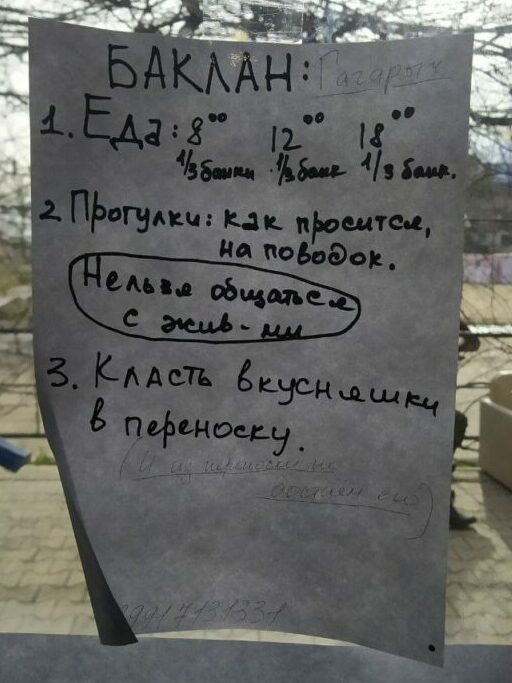 БАКЛАН: Гагарыч
1. Еда: 8⁰⁰ 12⁰⁰ 18⁰⁰
1/3 банки 1/3 банк 1/3 банк.
2 Прогулки: как просится,
на поводок.
Нельзя общаться
с жив-ми
3. Класть вкусняшки
в переноску.
(И из переноски не
достаем его)